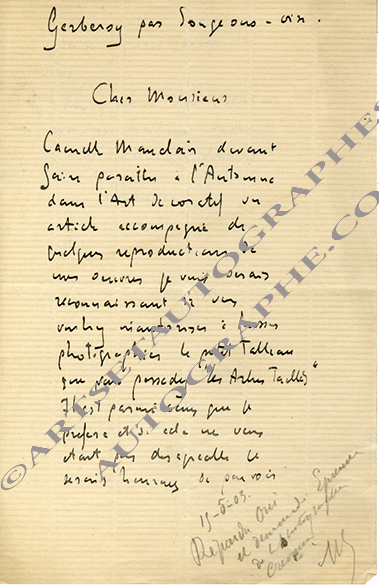 Gerberoy par Songeons - oise.
Cher Monsieur
Camille Mauclair devant
faire paraitre à l'Automne
dans l'Art decoratif un
article accompagné de
quelques reproductions de
mes oeuvres je vous serais
reconnaissant si vous
vouliez m'autoriser à
photographier le petit Tableau
que vous possedez "les Arbres Taillés"
Il est parmi ceux que je
prefere et si cela ne vous
etait pas desagreable je
serais heureux de pouvoir
15-5-03.
Répondu Oui
et demandé Epreuve
de la photographie
©ARTSETAUTOGRAPHES
AUTOGRAPHE.CO